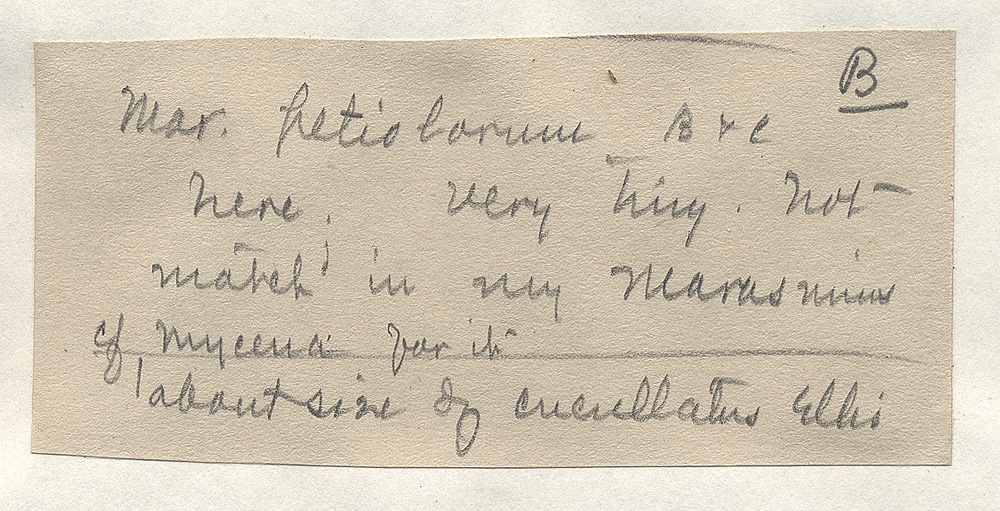 B
Mar. petiolorum B & C
here. very tiny. Not
match'd in my Marasmius
cf Mycena for it
about size of cucullatus Ellis